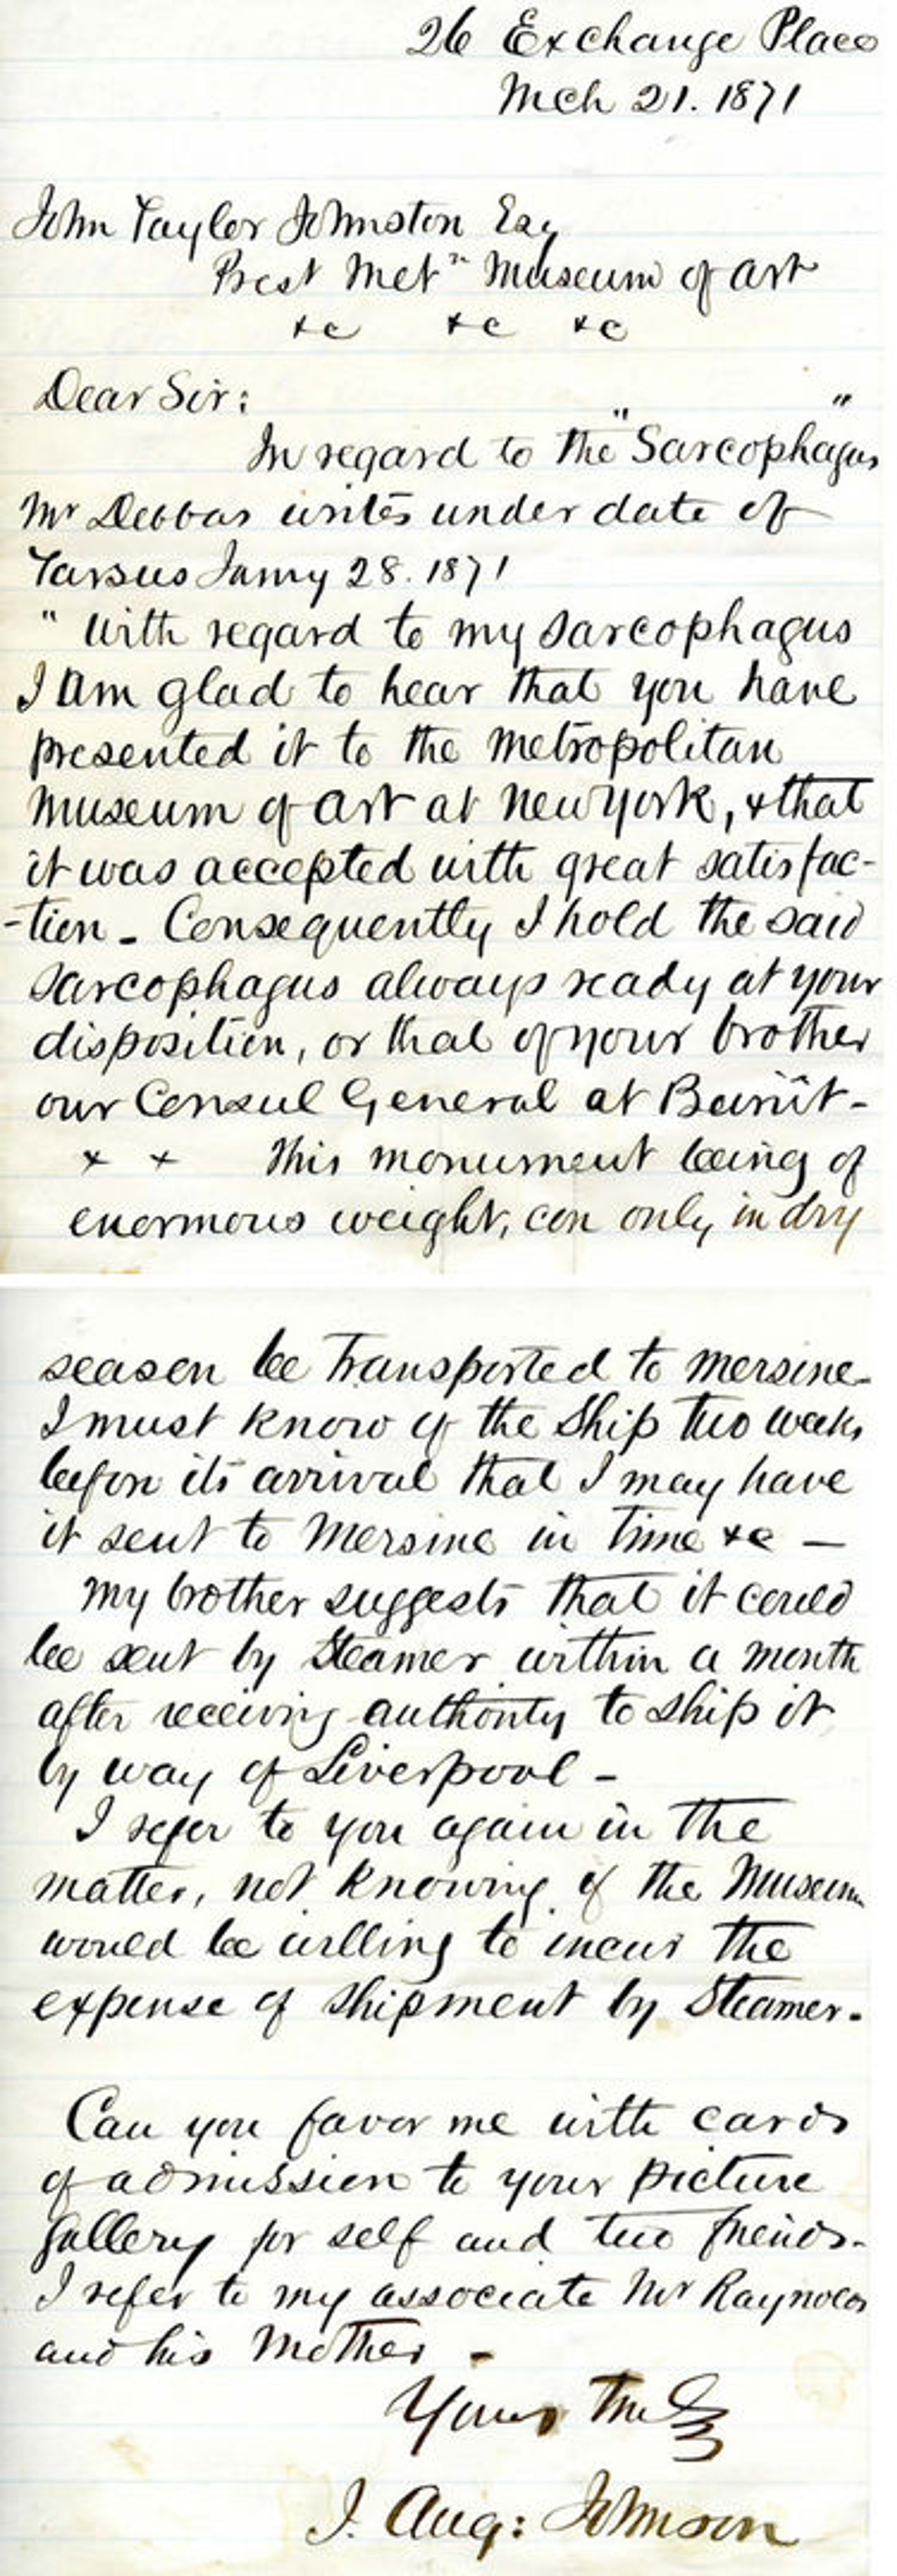 26 Exchange Place
Mch 21. 1871
John Taylor Johnston Esq
Prest Metn Museum of Art
&c &c &c
Dear Sir:
In regard to the "Sarcophagus"
Mr Debbas writes under date of
Tarsus Jany 28. 1871
" With regard to my Sarcophagus
I am glad to hear that you have
presented it to the Metropolitan
Museum of Art at New York, & that
it was accepted with great satisfac-
-tion - Consequently I hold the said
Sarcophagus always ready at your
disposition, or that of your brother
our Consul General at Beirût -
x x This monument being of
enormous weight, can only in dry
season be transported to Mersine -
I must know of the Ship two weeks
before its arrival that I may have
it sent to Mersine in time &c —
My brother suggests that it could
be sent by Steamer within a month
after receiving authority to ship it
by way of Liverpool -
I refer to you again in the
matter, not knowing if the Museum
would be willing to incur the
expense of shipment by Steamer.
Can you favor me with cards
of admission to your picture
gallery for self and two friends -
I refer to my associate Mr Raynolds
and his Mother -
Yours truly
J. Aug: Johnson